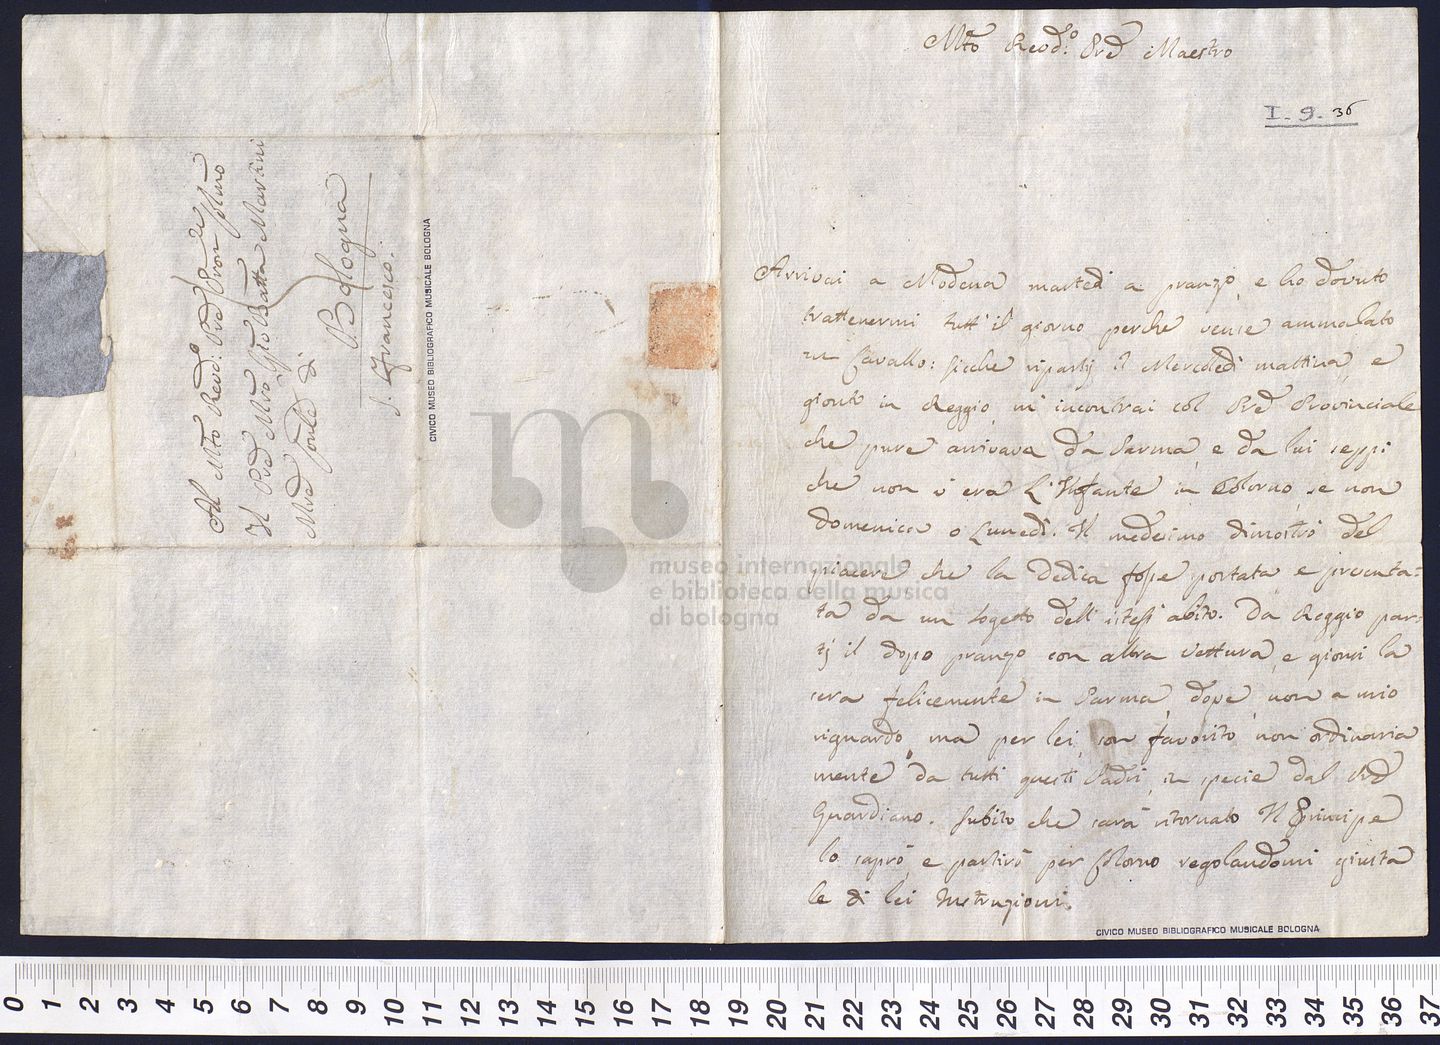 Al Mto Revdo: Pre Pron Colmo
Il Pre Mro Gio: Batta Martini
Mre Conle di
Bologna
S. Francesco.
CIVICO MUSEO BIBLIOGRAFICO MUSICALE BOLOGNA
Mto Revdo: Pre Maestro
I - 9 - 36
Arrivai a Modena martedì a pranzo, e ho dovuto
trattenermi tutt'il giorno perche venne ammalato
un Cavallo: sicche ripartij il Mercoledì mattina, e
gionto in Reggio, mi incontrai col Pre Provinciale
che pure arrivava da Parma, e da lui seppi
che non v'era L'Infante in Colorno, se non
domenica o Lunedì. Il medesimo dimostrò del
piacere che la Dedica fosse portata, e presenta=
ta da un sogetto dell'istess'abito. Da Reggio par=
tj il dopo pranzo con altra Vettura, e gionsi la
sera felicemente in Parma, dove, non a mio
riguardo, ma per lei, son favorito non ordinaria
mente da tutti questi Padri, in specie dal Pre
Guardiano. Subito che sarà ritornato Il Principe
lo saprò, e partirò per Colorno regolandomi giusta
le di lei Instruzioni.
CIVICO MUSEO BIBLIOGRAFICO MUSICALE BOLOGNA
museo internazionale
e biblioteca della musica
di bologna
0 1 2 3 4 5 6 7 8 9 10 11 12 13 14 15 16 17 18 19 20 21 22 23 24 25 26 27 28 29 30 31 32 33 34 35 36 37